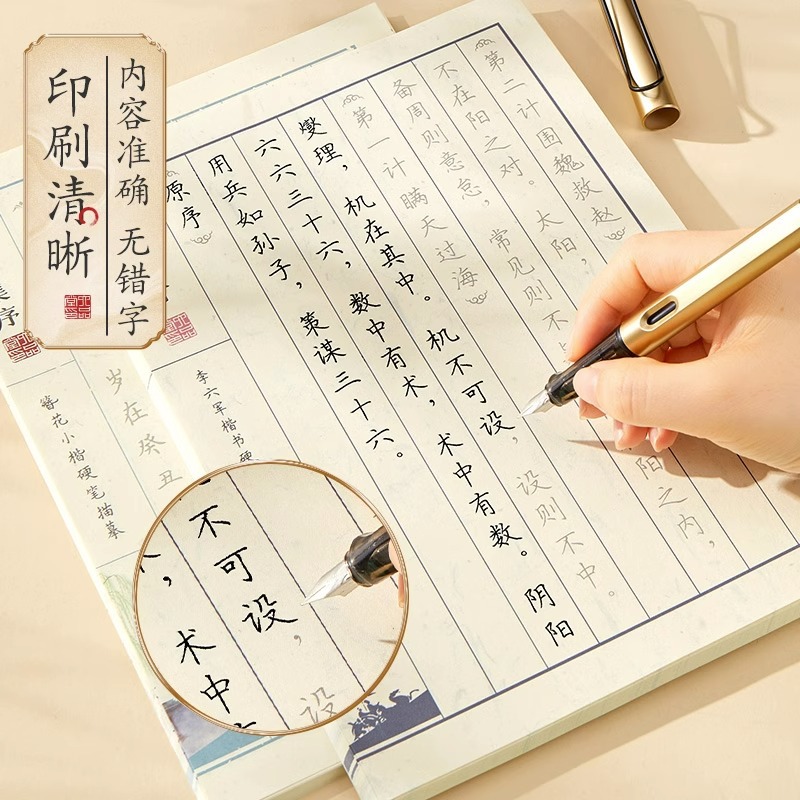 印刷清晰
内容准确 无错字
原序
用兵如孙子，策谋三十六。
六六三十六，数中有术，术中有数。阴阳
燮理，机在其中。机不可设，设则不中。
第一计 瞒天过海
备周则意怠，常见则不
阳之内，
不在阳之对。太阳，
第二计 围魏救赵
李六军楷书硬
序
簪花小楷硬笔描摹
岁在癸丑
术中
不可设，设